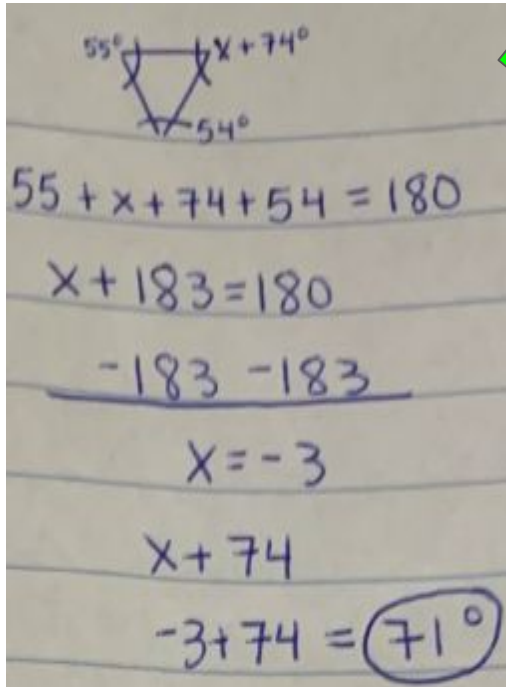 55° x+74°
54°
55+x+74+54=180
x+183=180
-183 -183
x=-3
x+74
-3+74=71°